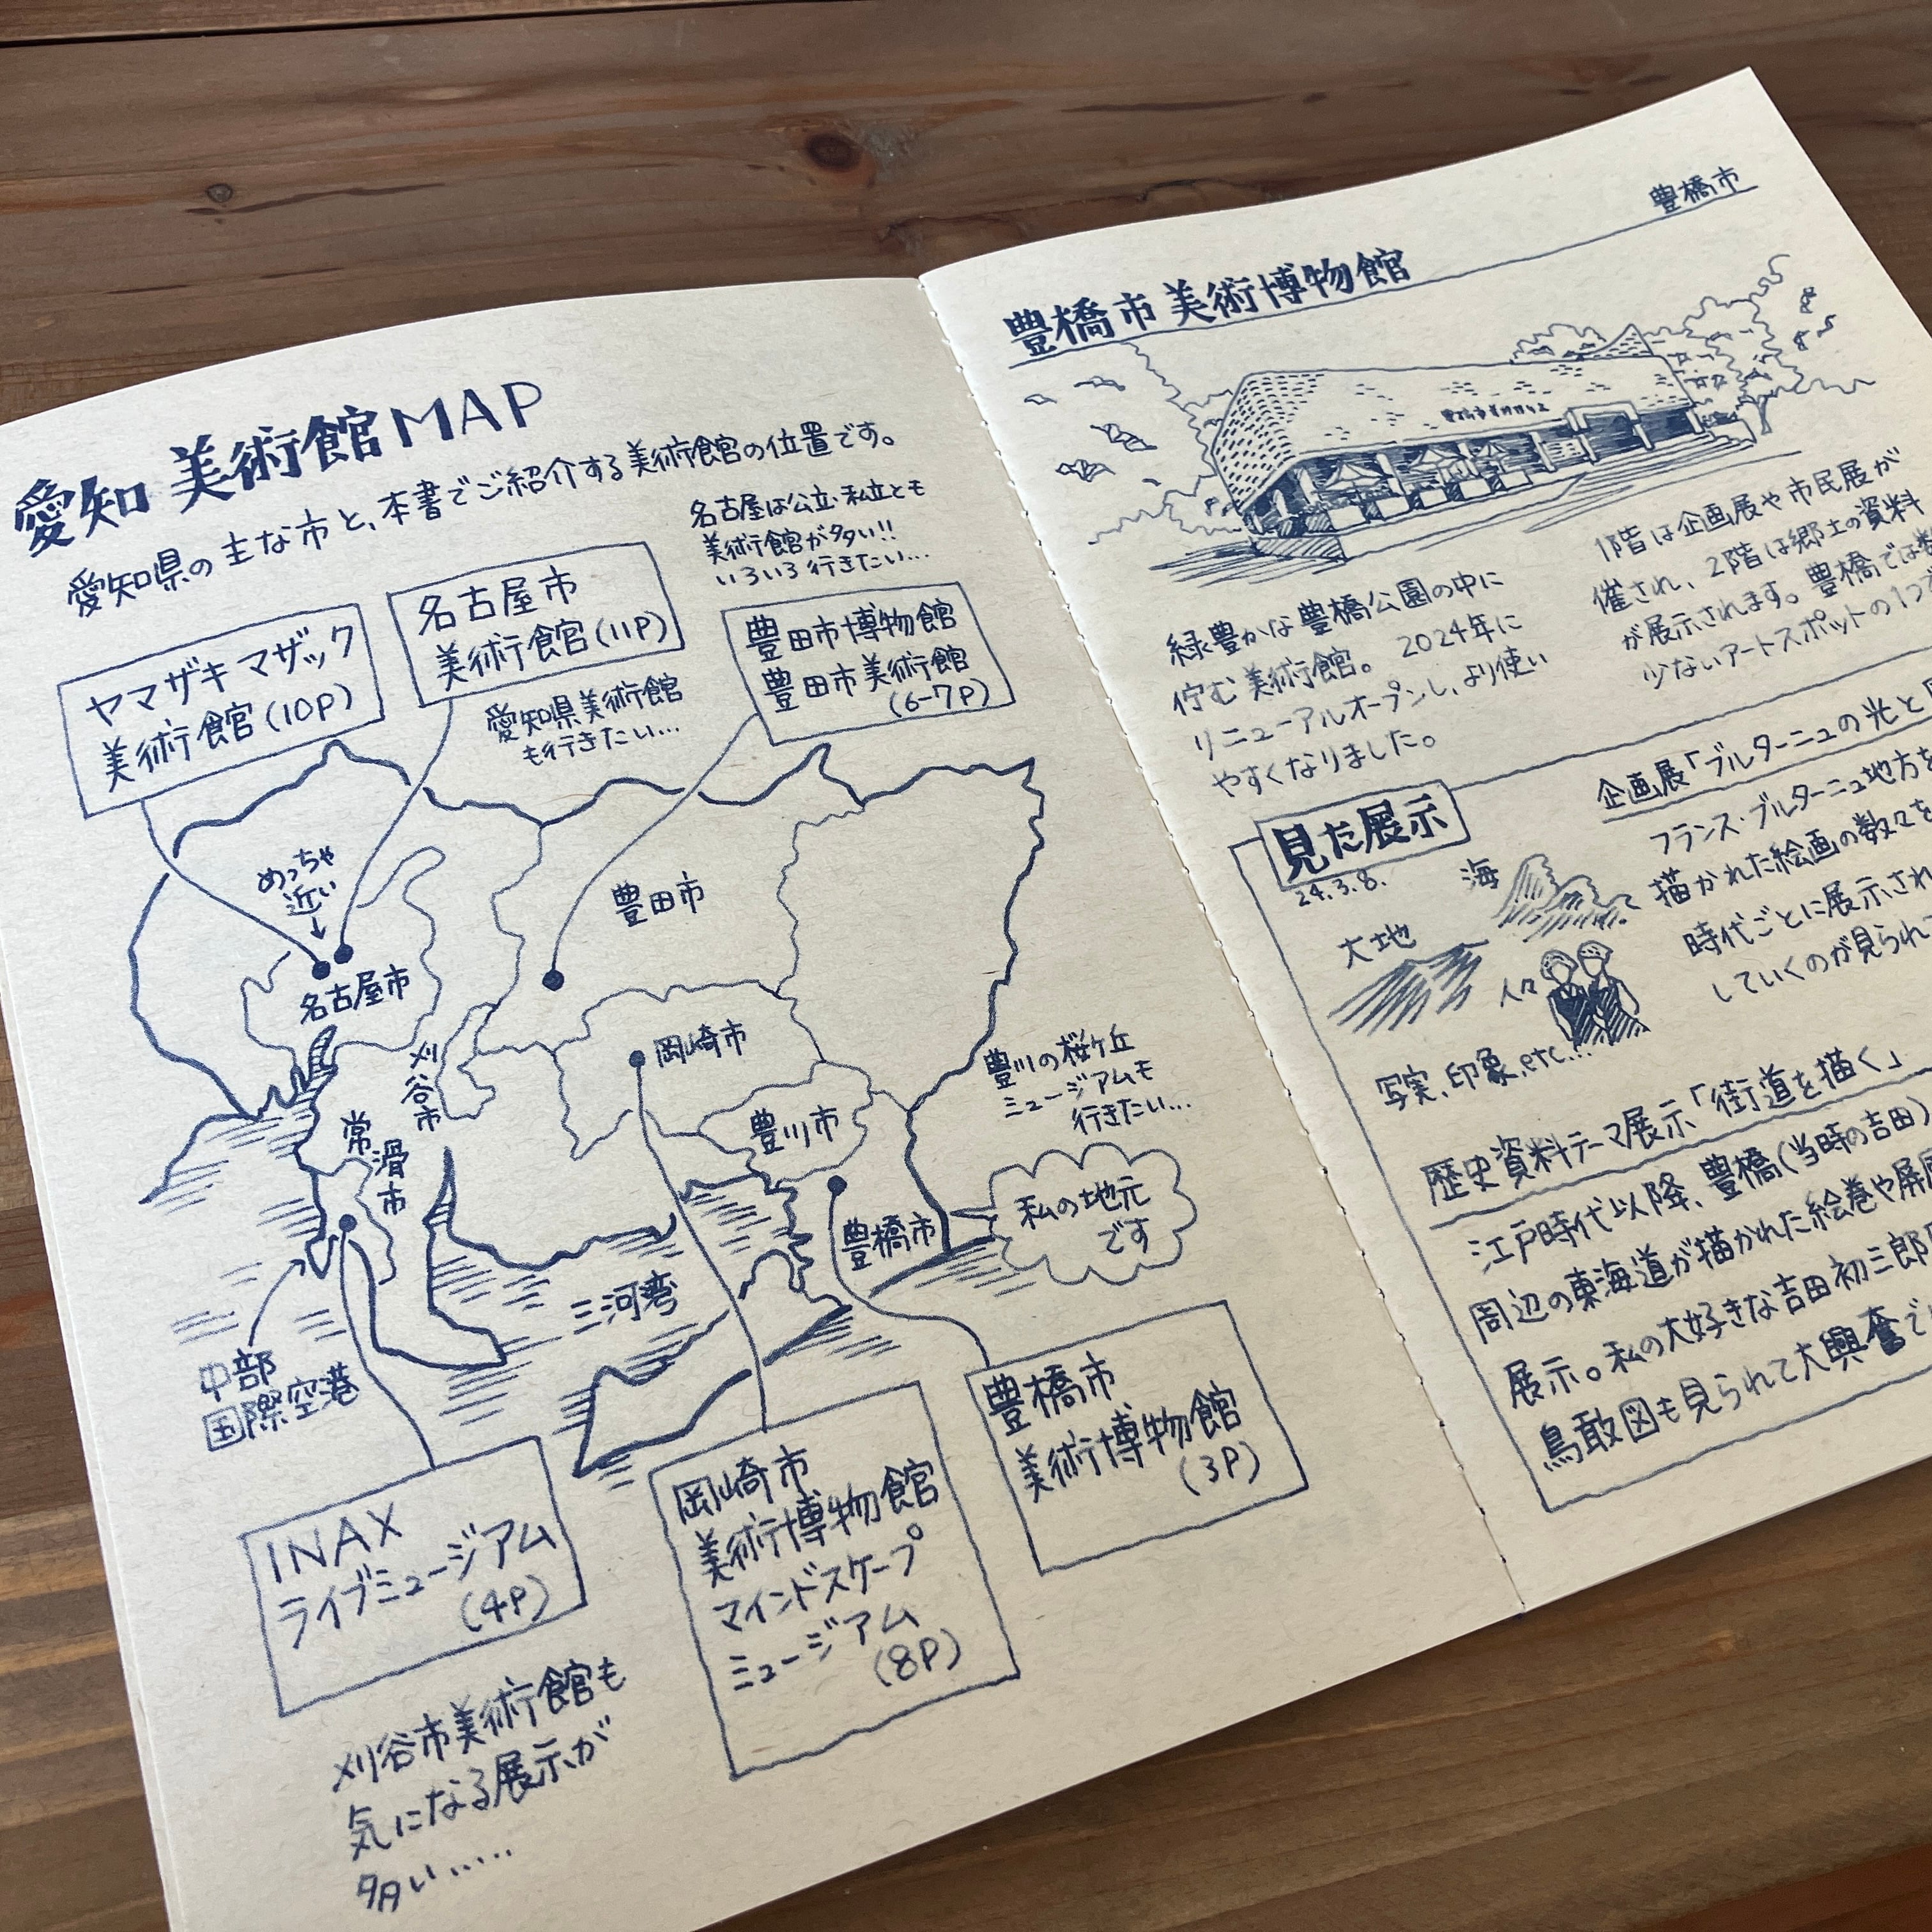 愛知 美術館MAP
愛知県の主な市と、本書でご紹介する美術館の位置です。
名古屋は公立・私立とも
美術館が多い!!
いろいろ行きたい…
ヤマザキマザック
美術館(10P)
名古屋市
美術館(11P)
愛知県美術館
も行きたい…
豊田市博物館
豊田市美術館
(6-7P)
めっちゃ
近い
名古屋市
豊田市
刈谷市
岡崎市
常滑市
豊川市
豊橋市
豊川の桜ヶ丘
ミュージアムも
行きたい…
私の地元
です
三河湾
中部
国際空港
INAX
ライブミュージアム
(4P)
岡崎市
美術博物館
マインドスケープ
ミュージアム
(8P)
豊橋市
美術博物館
(3P)
刈谷市美術館も
気になる展示が
多い……
豊橋市
豊橋市美術博物館
緑豊かな豊橋公園の中に
佇む美術館。2024年に
リニューアルオープンし、より使い
やすくなりました。
1階は企画展や市民展が
催され、2階は郷土の資料
が展示されます。豊橋では
少ないアートスポットの1つ
見た展示
24.3.8.
海
大地
人々
写実、印象、etc…
企画展「ブルターニュの光と
フランス・ブルターニュ地方を
描かれた絵画の数々を
時代ごとに展示され
していくのが見られて
歴史資料テーマ展示「街道を描く」
江戸時代以降、豊橋(当時の吉田)
周辺の東海道が描かれた絵巻や屏風
展示。私の大好きな吉田初三郎
鳥瞰図も見られて大興奮で